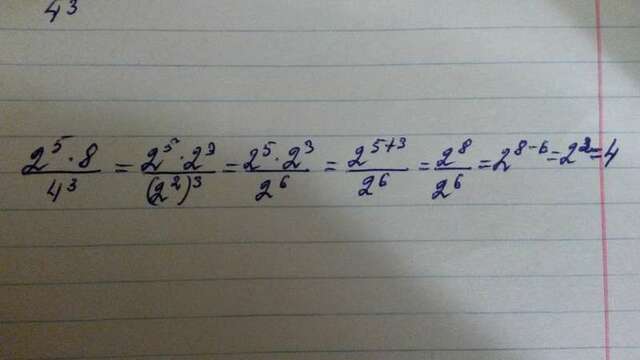 4³
2⁵·8/4³ = 2⁵·2³/(2²)³ = 2⁵·2³/2⁶ = 2⁵⁺³/2⁶ = 2⁸/2⁶ = 2⁸⁻⁶ = 2² = 4